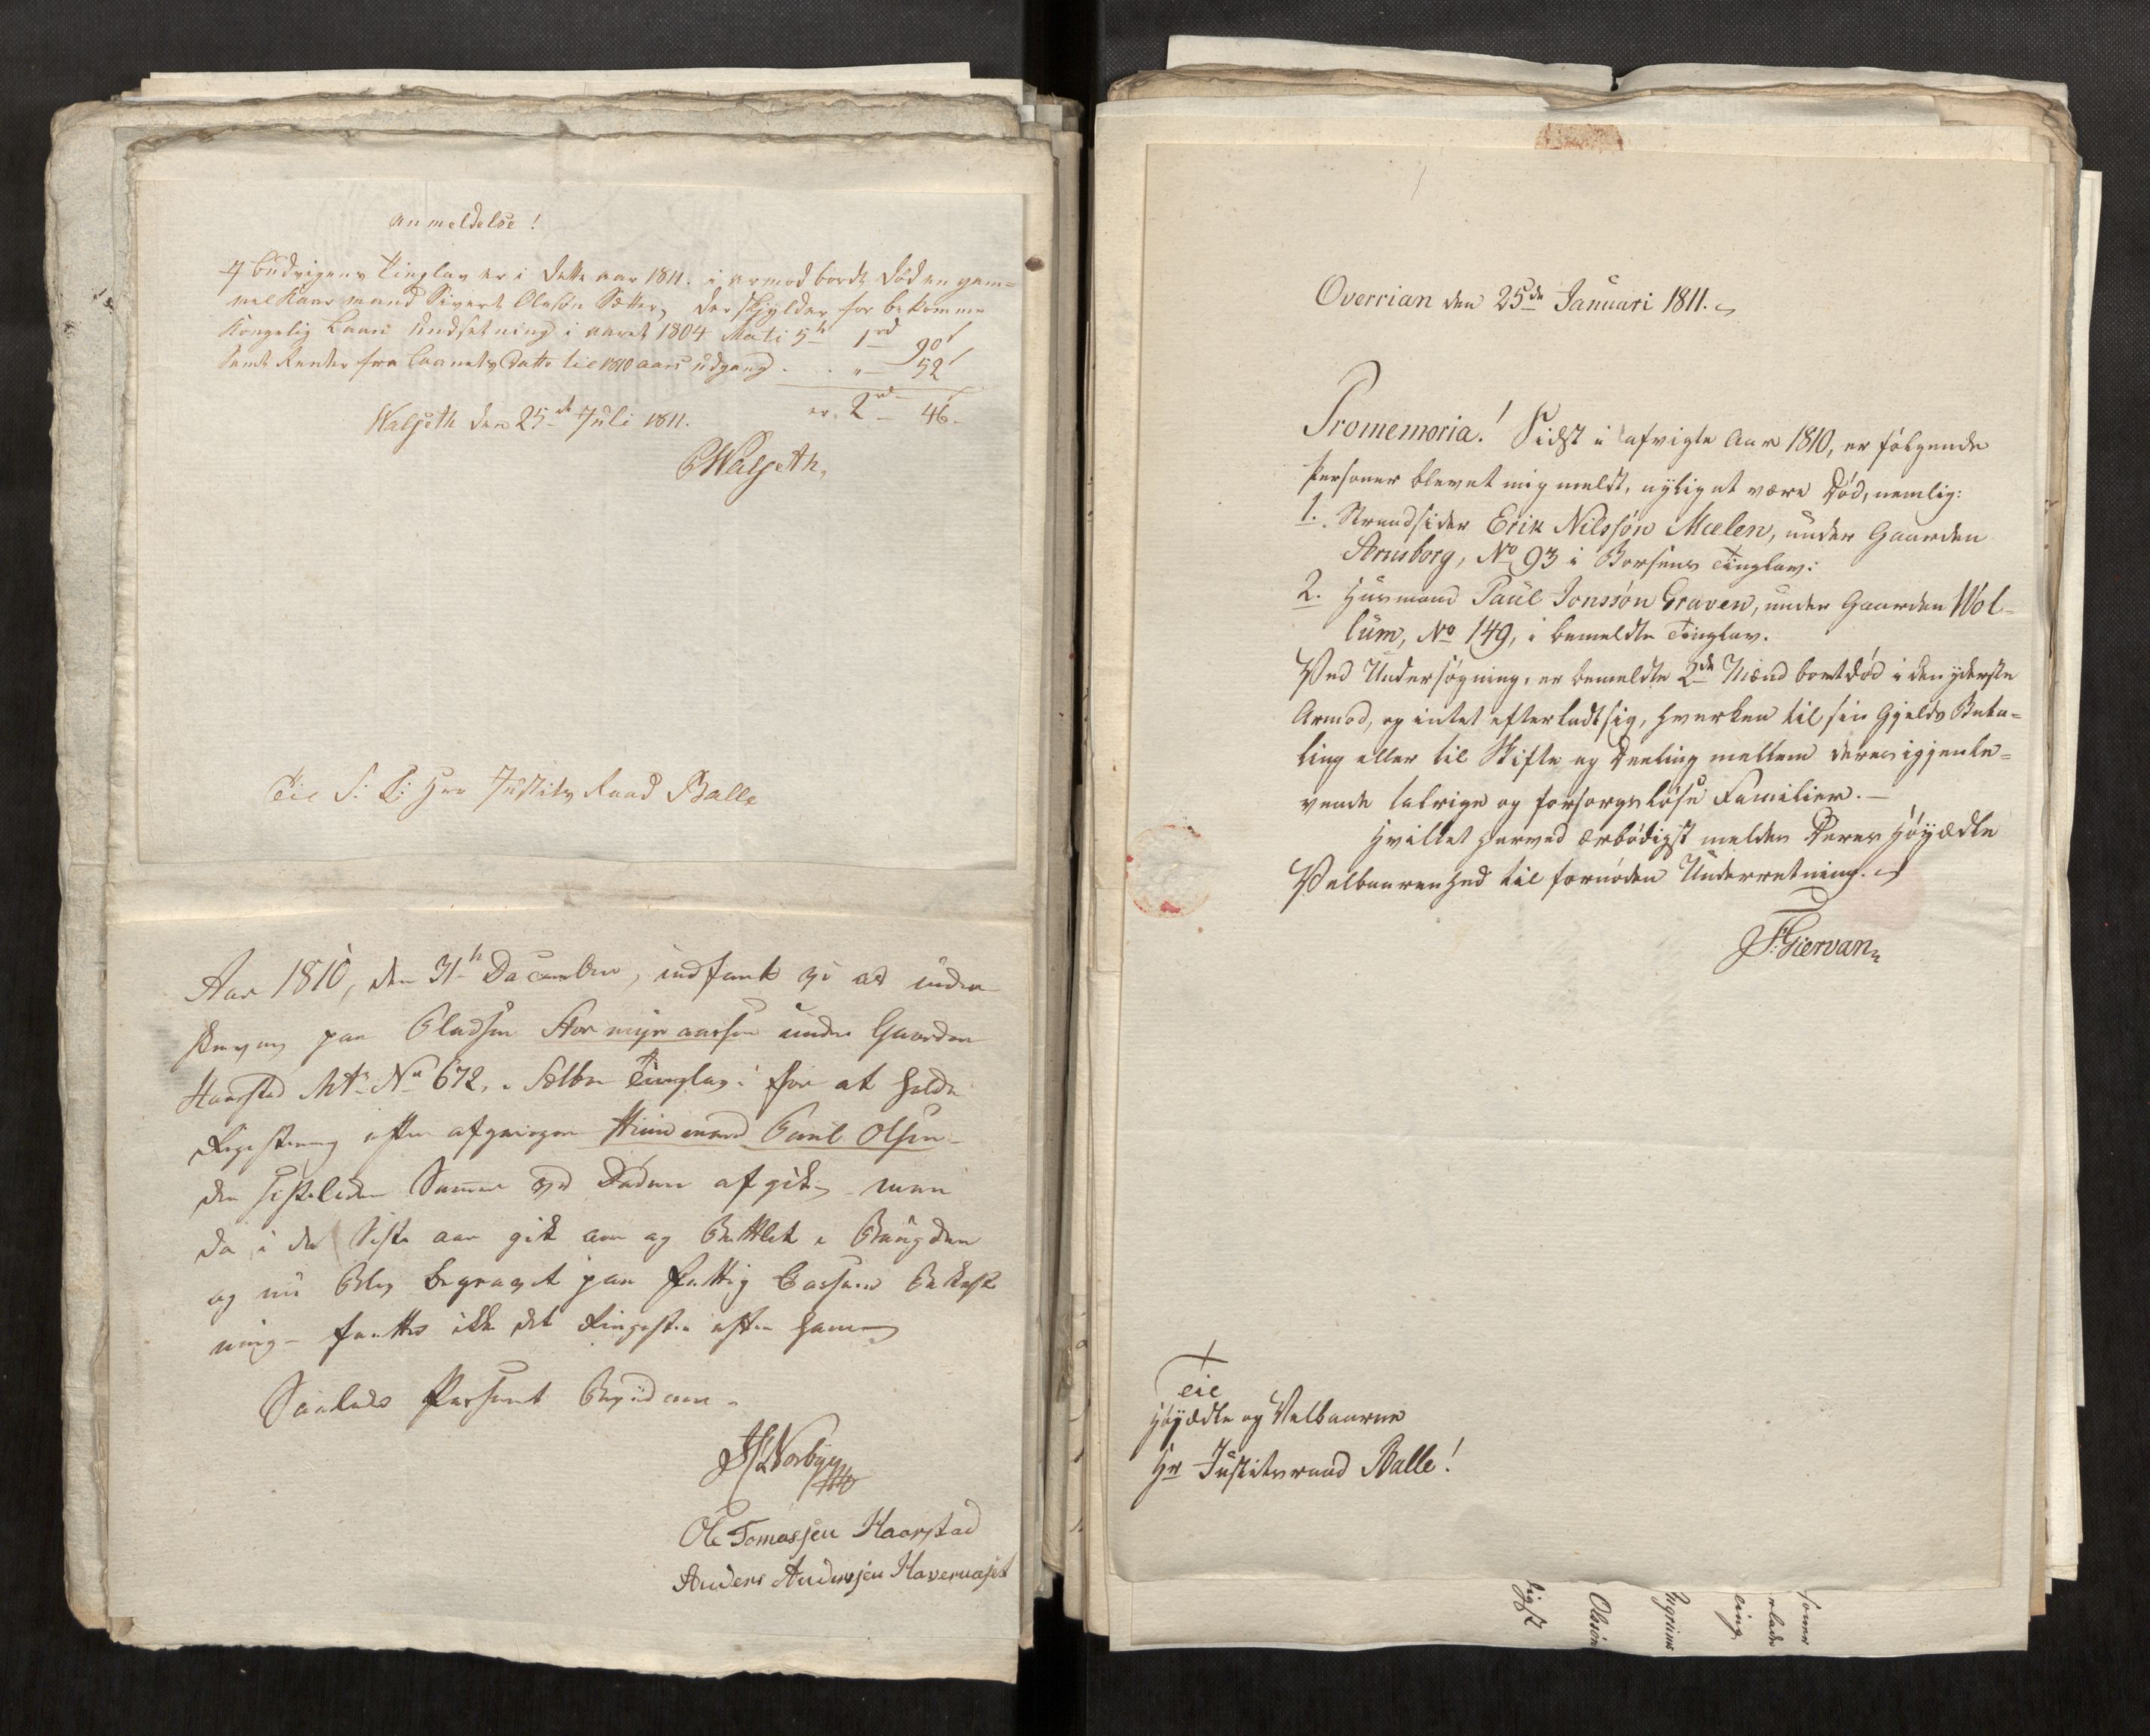 Anmeldelse!
I Budvigens Tinglav er i dette aar 1811. i armod bortdød en gam=
mel Kaarmand Sivert Olesøn Sætter, der skylder for bekomme
Kongelig Laan Undsetning i aaret 1804 Mati 5te 1 rd 90 s
samt Renter fra Laanets Datto til 1810 aars udgang . . „ — 52 s
er 2 rd — 46.
Walseth den 25de Juli 1811.
Walseth.
Til S: T: Herr Justits Raad Balle
Aar 1810, den 31te December, indfant vi os under
paa Pladsen Stormyraassen under Gaarden
Haarstad Mt: No 672, i Selboe Tinglag: for at holde
Registering efter afgangen Huusmand Poul Olsen
den sistleden Sommer ved Døden afgik, men
da i de siste aar gik om og Bettlet i Bøygden
og nu blev begravet paa fattig Cassens Bekost
ning – fantes ikke det Ringeste efter ham
Saaledes Passeret Bevidner.
Norbye
Ole Tomassen Haarstad
Anders Anderssen Havernæset
Overrian den 25de Januari 1811.
Promemoria! Sidst i afvigte Aar 1810, er følgende
Personer blevet mig meldt, nylig at være Død, nemlig:
1. Strandsider Erik Nilssøn Mælen, under Gaarden
Arnsborg, No 93 i Børsens Tinglav:
2. Huusmand Paul Jonssøn Graven, under Gaarden Wol-
lum, No 149, i bemeldte Tinglav.
Ved Undersøgning, er bemeldte 2de Mænd bortdød i den yderste
Armod, og intet efterladt sig, hverken til sin Gjelds Beta=
ling eller til Skifte og Deeling mellem deres igjenle=
vende talrige og forsorgsløse Familier. —
Hvilket herved ærbødigst meldes Deres Høyædle
Velbaarenhed til fornøden Underretning.
F: Giervan
Til
Høyædle og Velbaarne
Hr Justitsraad Balle!
ling
Olesøn
digst